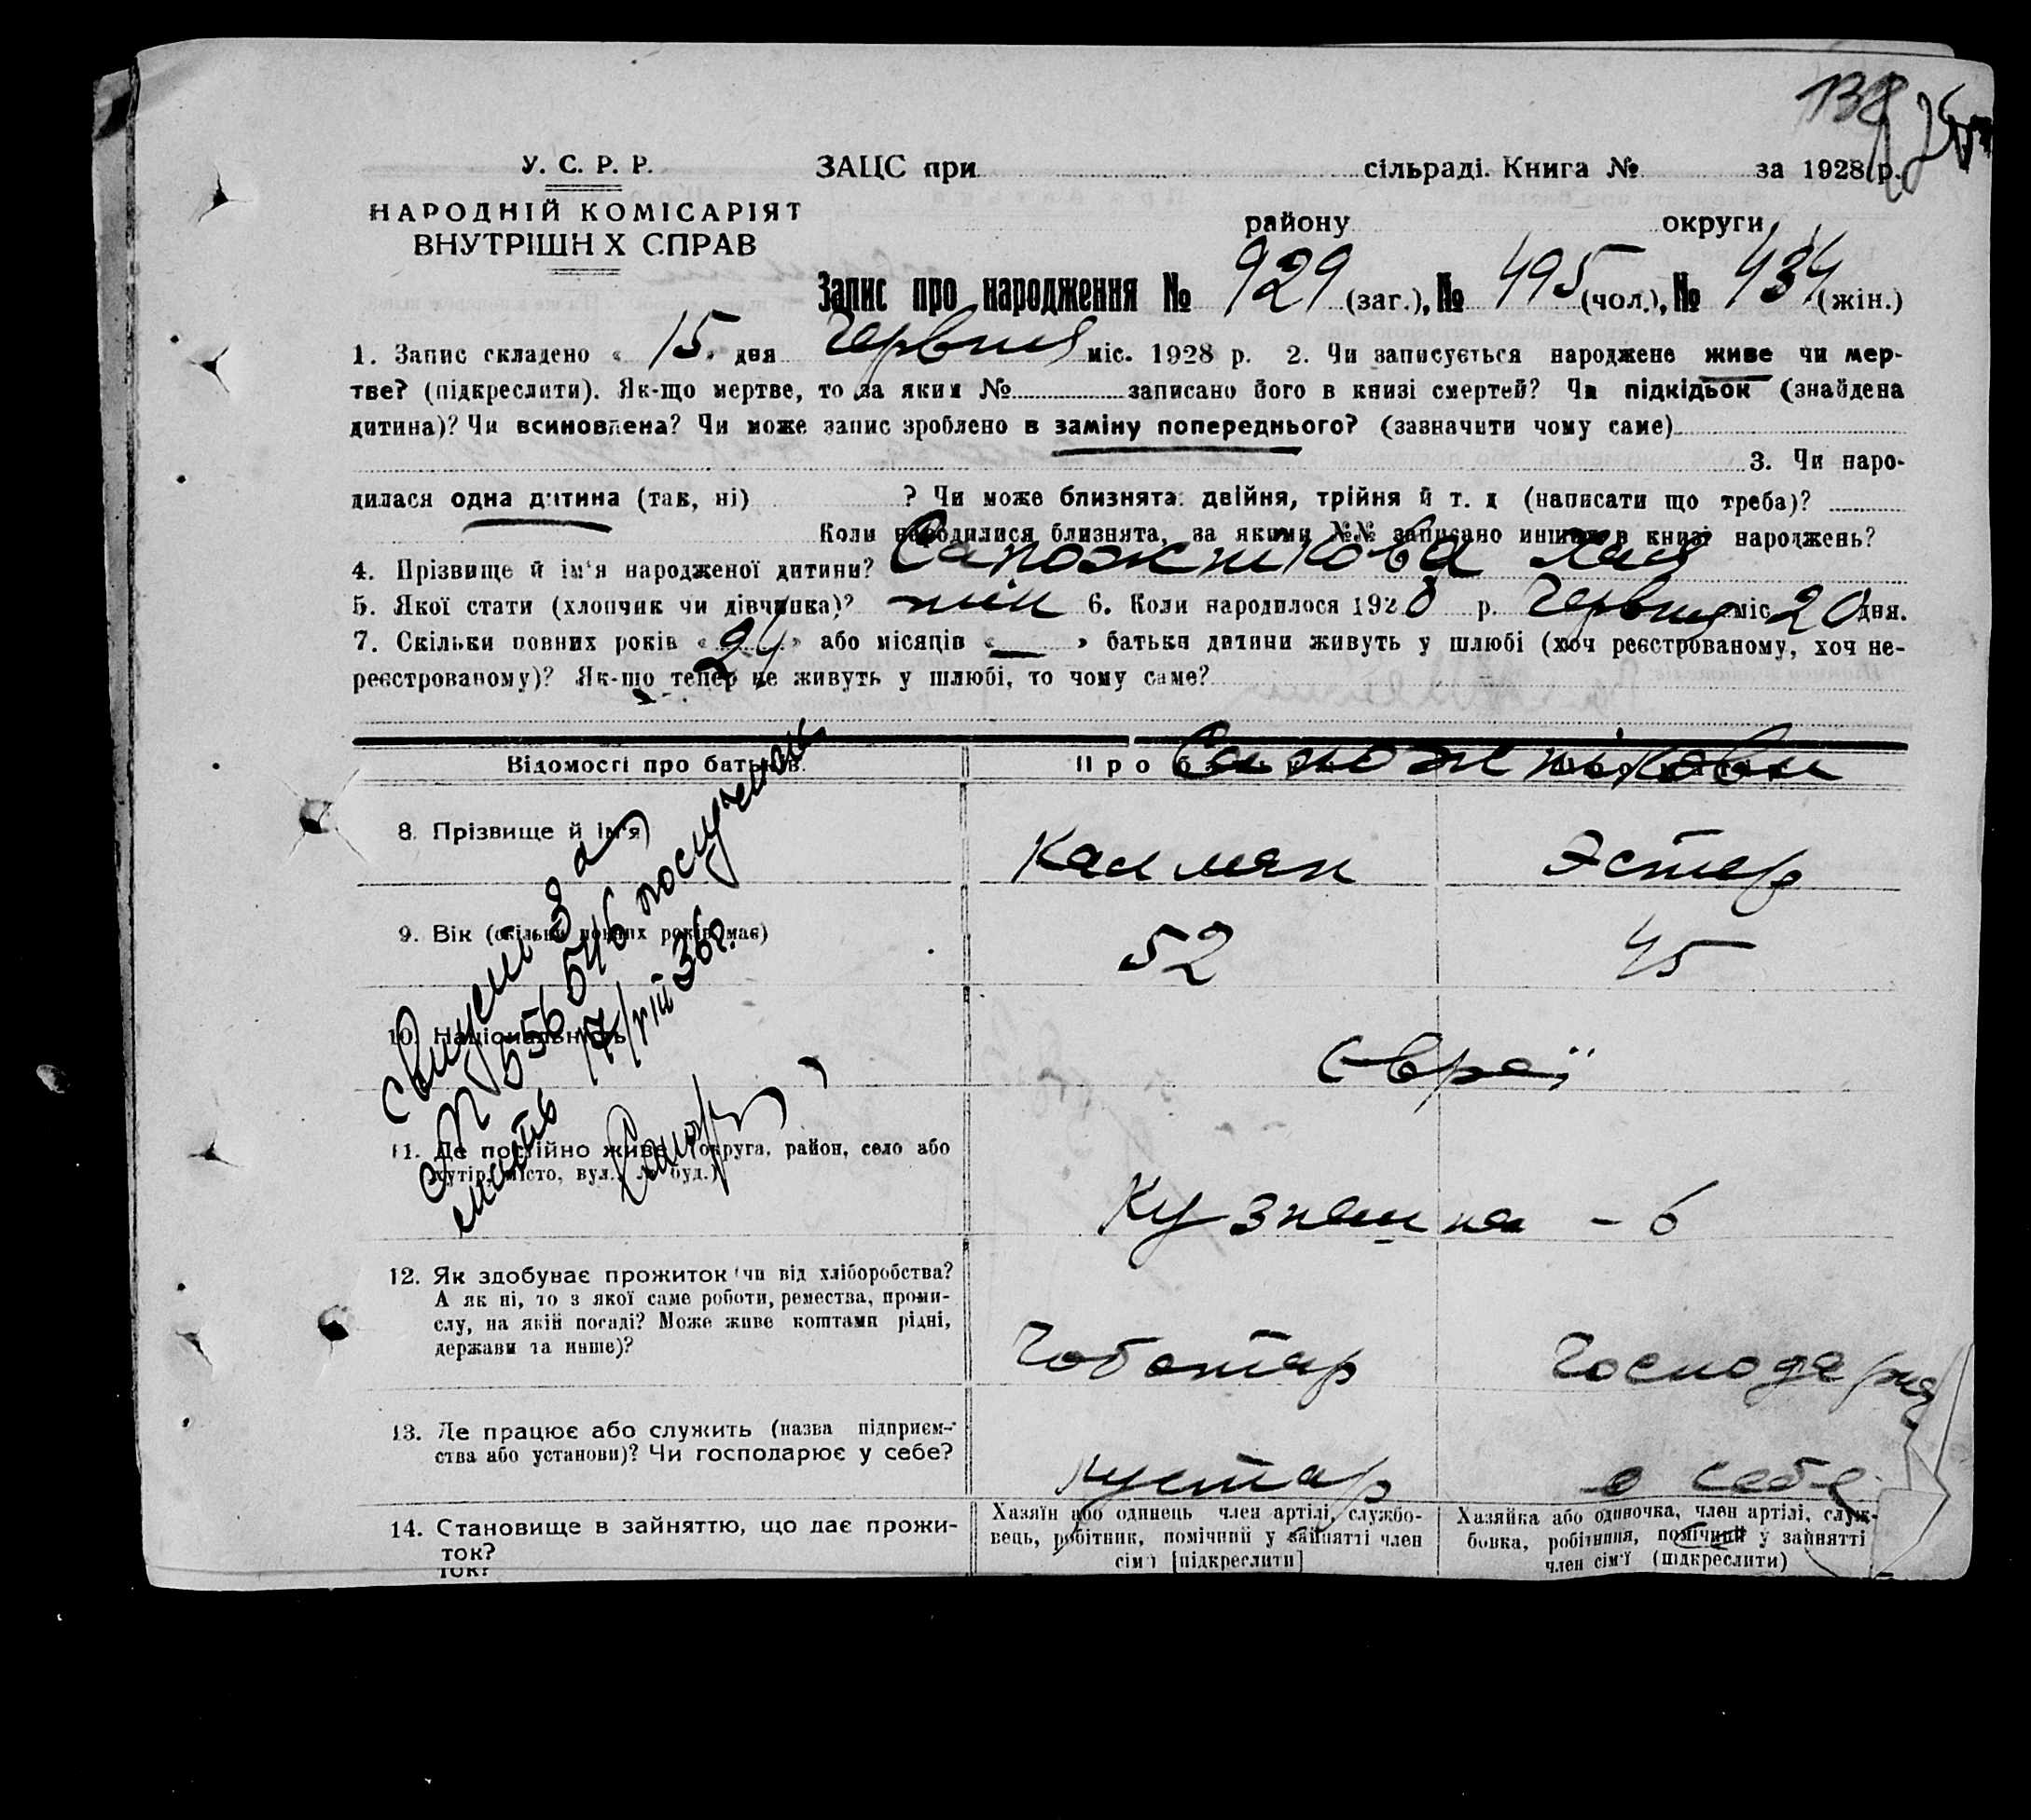 138
У. С. Р. Р.
ЗАЦС при сільраді. Книга № за 1928 р.
НАРОДНІЙ КОМІСАРІЯТ
ВНУТРІШН Х СПРАВ
району округи
Запис про народження № 929 (заг.), № 495 (чол.), № 434 (жін.)
1. Запис складено « 15 » дня Червня міс. 1928 р. 2. Чи записується народжене живе чи мер-
тве? (підкреслити). Як-що мертве, то за яким № записано його в книзі смертей? Чи підкідьок (знайдена
дитина)? Чи всиновлена? Чи може запис зроблено в заміну попереднього? (зазначити чому саме)
3. Чи наро-
дилася одна дитина (так, ні) ? Чи може близнята: двійня, трійня й т. д (написати що треба)?
Коли народилися близнята, за якими №№ записано инших в книзі народжень?
4. Прізвище й ім'я народженої дитини? Сапожнікова Хая
5. Якої стати (хлопчик чи дівчинка)? жін 6. Коли народилося 1920 р. Червня міс 20 дня.
7. Скільки повних років « 24 » або місяців « — » батьки дитини живуть у шлюбі (хоч реєстрованому, хоч не-
реєстрованому)? Як-що тепер не живуть у шлюбі, то чому саме?
Відомості про батьків. Про Сапожнікови
8. Прізвище й ім'я Калман Эстер
9. Вік (скільки повних років має) 52 45
10. Національність Євреї
11. Де постійно живе (округа, район, село або
хутір, місто, вул., № буд.) Кузнешна - 6
12. Як здобуває прожиток (чи від хліборобства?
А як ні, то з якої саме роботи, ремества, проми-
слу, на якій посаді? Може живе коштами рідні,
держави та инше)? Чоботар Господарня
13. Де працює або служить (назва підприєм-
ства або установи)? Чи господарює у себе? Кустар в себе
14. Становище в зайняттю, що дає прожи-
ток?
Хазяїн або одинець член артілі, службо-
вець, робітник, помічний у зайнятті член
сім'ї [підкреслити]
Хазяйка або одиночка, член артілі, служ-
бовка, робітниця, помічний у зайнятті
член сім'ї (підкреслити)
№ 656546 17/VIII 36 г.